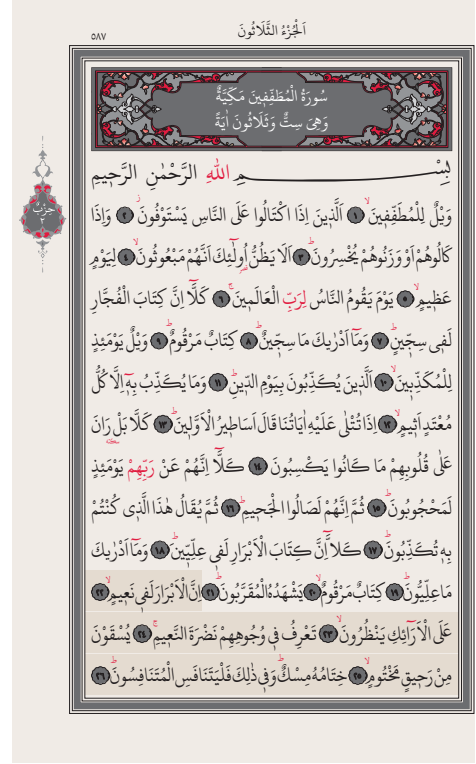 اَلْجُزْءُ الثَّلَاثُونَ
٥٨٧
سُورَةُ الْمُطَفِّفِينَ مَكِّيَّةٌ
وَهِيَ سِتٌّ وَثَلَاثُونَ اٰيَةً
بِسْمِ اللّٰهِ الرَّحْمٰنِ الرَّحِيمِ
وَيْلٌ لِلْمُطَفِّفِينَۙ ﴿١﴾ اَلَّذِينَ اِذَا اكْتَالُوا عَلَى النَّاسِ يَسْتَوْفُونَۘ ﴿٢﴾ وَاِذَا
كَالُوهُمْ اَوْ وَزَنُوهُمْ يُخْسِرُونَۜ ﴿٣﴾ اَلَا يَظُنُّ اُولٰٓئِكَ اَنَّهُمْ مَبْعُوثُونَۙ ﴿٤﴾ لِيَوْمٍ
عَظِيمٍۙ ﴿٥﴾ يَوْمَ يَقُومُ النَّاسُ لِرَبِّ الْعَالَمِينَۜ ﴿٦﴾ كَلَّٓا اِنَّ كِتَابَ الْفُجَّارِ
لَفِي سِجِّينٍۜ ﴿٧﴾ وَمَٓا اَدْرٰيكَ مَا سِجِّينٌۜ ﴿٨﴾ كِتَابٌ مَرْقُومٌۜ ﴿٩﴾ وَيْلٌ يَوْمَئِذٍ
لِلْمُكَذِّبِينَۙ ﴿١٠﴾ اَلَّذِينَ يُكَذِّبُونَ بِيَوْمِ الدِّينِۜ ﴿١١﴾ وَمَا يُكَذِّبُ بِهٓ اِلَّا كُلُّ
مُعْتَدٍ اَثِيمٍۙ ﴿١٢﴾ اِذَا تُتْلٰى عَلَيْهِ اٰيَاتُنَا قَالَ اَسَاطِيرُ الْاَوَّلِينَۜ ﴿١٣﴾ كَلَّا بَلْ رَانَ
عَلٰى قُلُوبِهِمْ مَا كَانُوا يَكْسِبُونَ ﴿١٤﴾ كَلَّٓا اِنَّهُمْ عَنْ رَبِّهِمْ يَوْمَئِذٍ
لَمَحْجُوبُونَۜ ﴿١٥﴾ ثُمَّ اِنَّهُمْ لَصَالُوا الْجَحِيمِۜ ﴿١٦﴾ ثُمَّ يُقَالُ هٰذَا الَّذِي كُنْتُمْ
بِهِ تُكَذِّبُونَۜ ﴿١٧﴾ كَلَّٓا اِنَّ كِتَابَ الْاَبْرَارِ لَفِي عِلِّيِّينَۜ ﴿١٨﴾ وَمَٓا اَدْرٰيكَ
مَا عِلِّيُّونَۜ ﴿١٩﴾ كِتَابٌ مَرْقُومٌۙ ﴿٢٠﴾ يَشْهَدُهُ الْمُقَرَّبُونَۜ ﴿٢١﴾ اِنَّ الْاَبْرَارَ لَفِي نَعِيمٍۙ ﴿٢٢﴾
عَلَى الْاَرَٓائِكِ يَنْظُرُونَۙ ﴿٢٣﴾ تَعْرِفُ فِي وُجُوهِهِمْ نَضْرَةَ النَّعِيمِۚ ﴿٢٤﴾ يُسْقَوْنَ
مِنْ رَحِيقٍ مَخْتُومٍۙ ﴿٢٥﴾ خِتَامُهُ مِسْكٌۜ وَفِي ذٰلِكَ فَلْيَتَنَافَسِ الْمُتَنَافِسُونَۜ ﴿٢٦﴾
حِزْبُ
٢